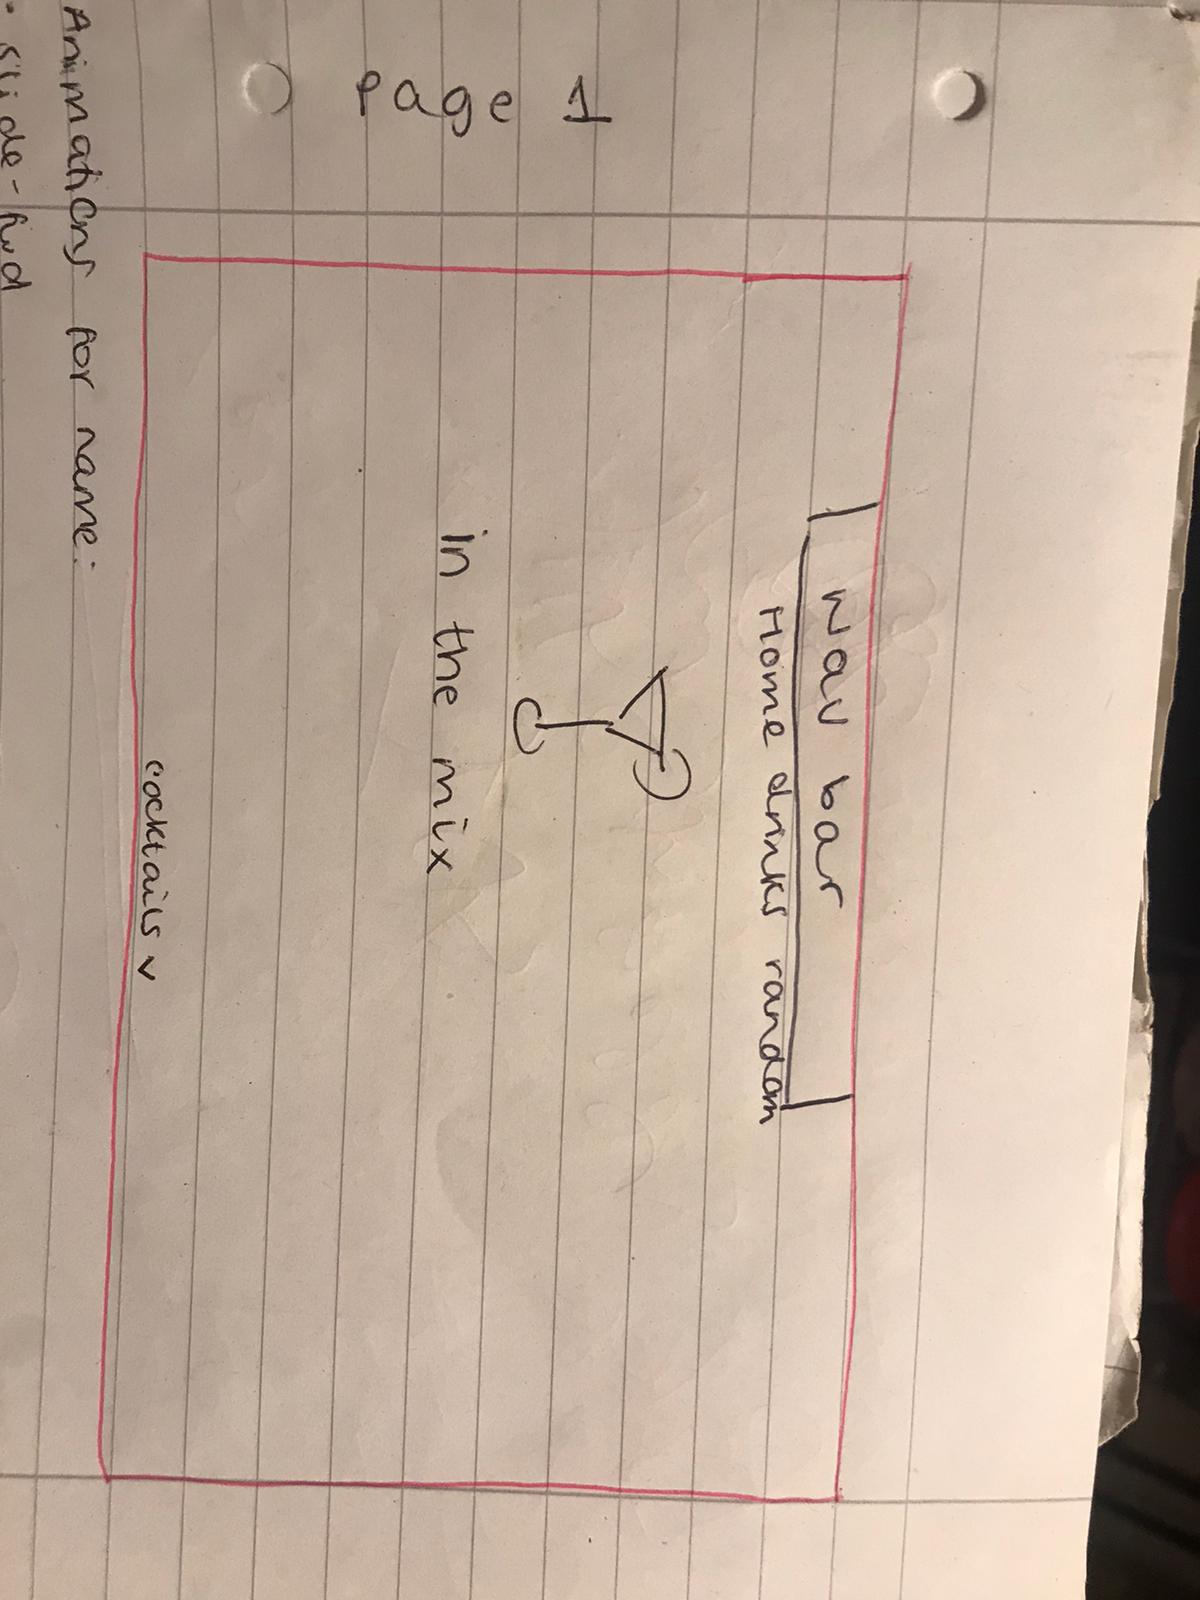 Page 1
Nav bar
Home drinks random
In the mix
cocktails v
Animations for name: